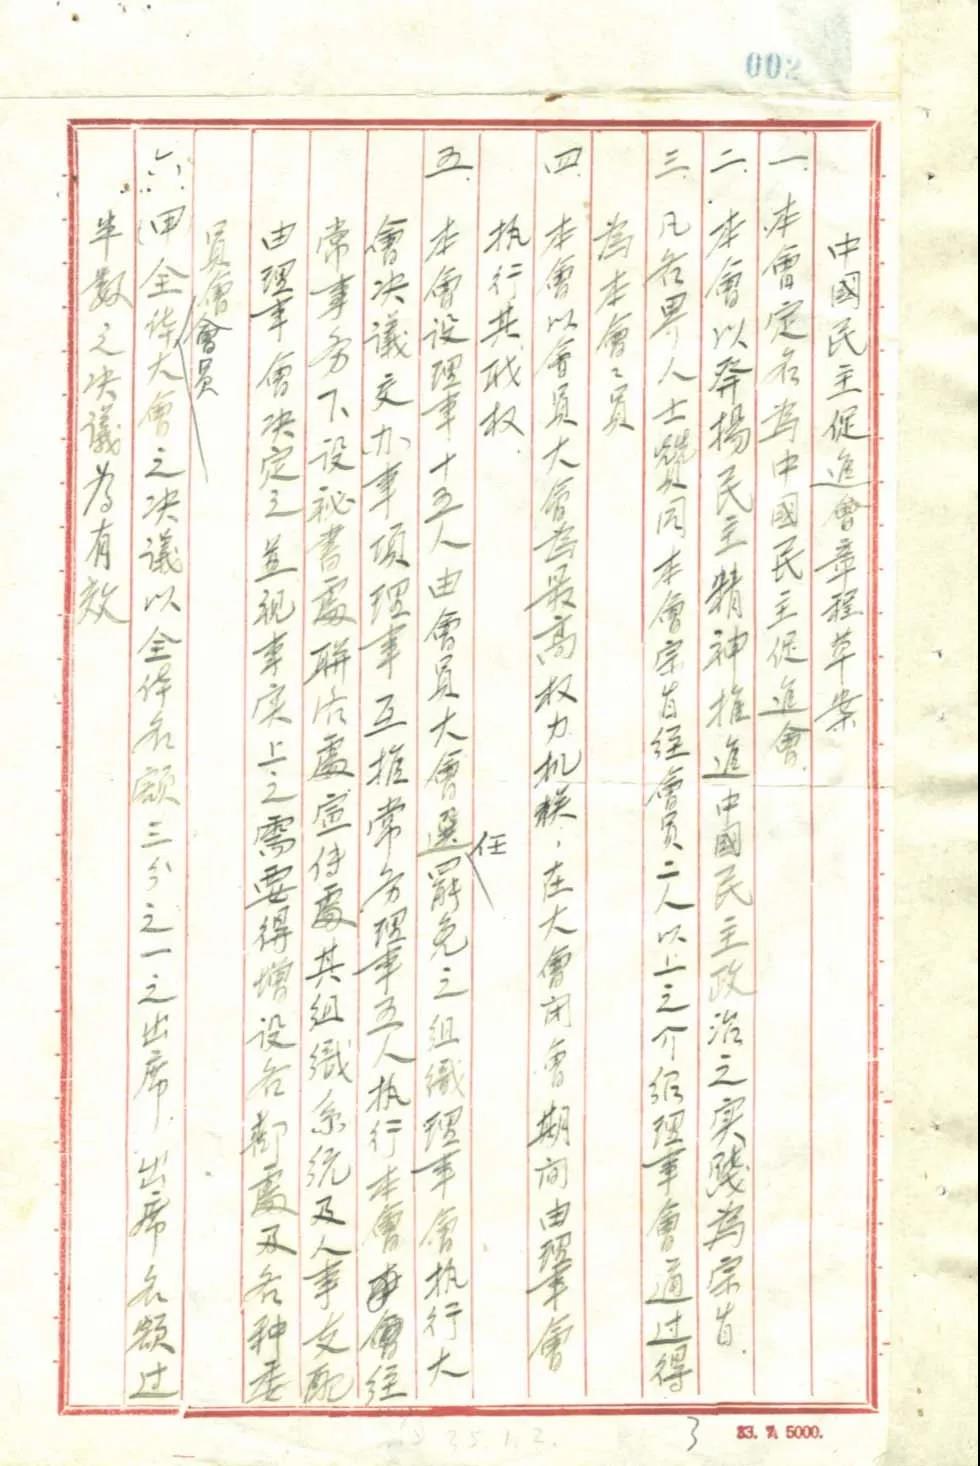 002
中國民主促進會章程草案
一.本會定名為中國民主促進會.
二.本會以發揚民主精神推進中國民主政治之实践為宗旨.
三.凡各界人士贊同本會宗旨経會員二人以上之介紹理事會通过得
為本會〻員
四.本會以會員大會為最高权力机関.在大會闭會期间由理事會
执行其职权.
五.本會设理事十五人由會員大會選任罷免之组織理事會执行大
會决議交办事項理事互推常务理事五人执行本會會経
常事务下设祕書處聯络處宣传處其组織系统及人事支配
由理事會决定之並視事实上之需要得增设各部處及各种委
員會
六.(甲)全体會員大會之决議以全体名额三分之一之出席.出席名额过
半數之决議為有效
3
33. 7. 5000.